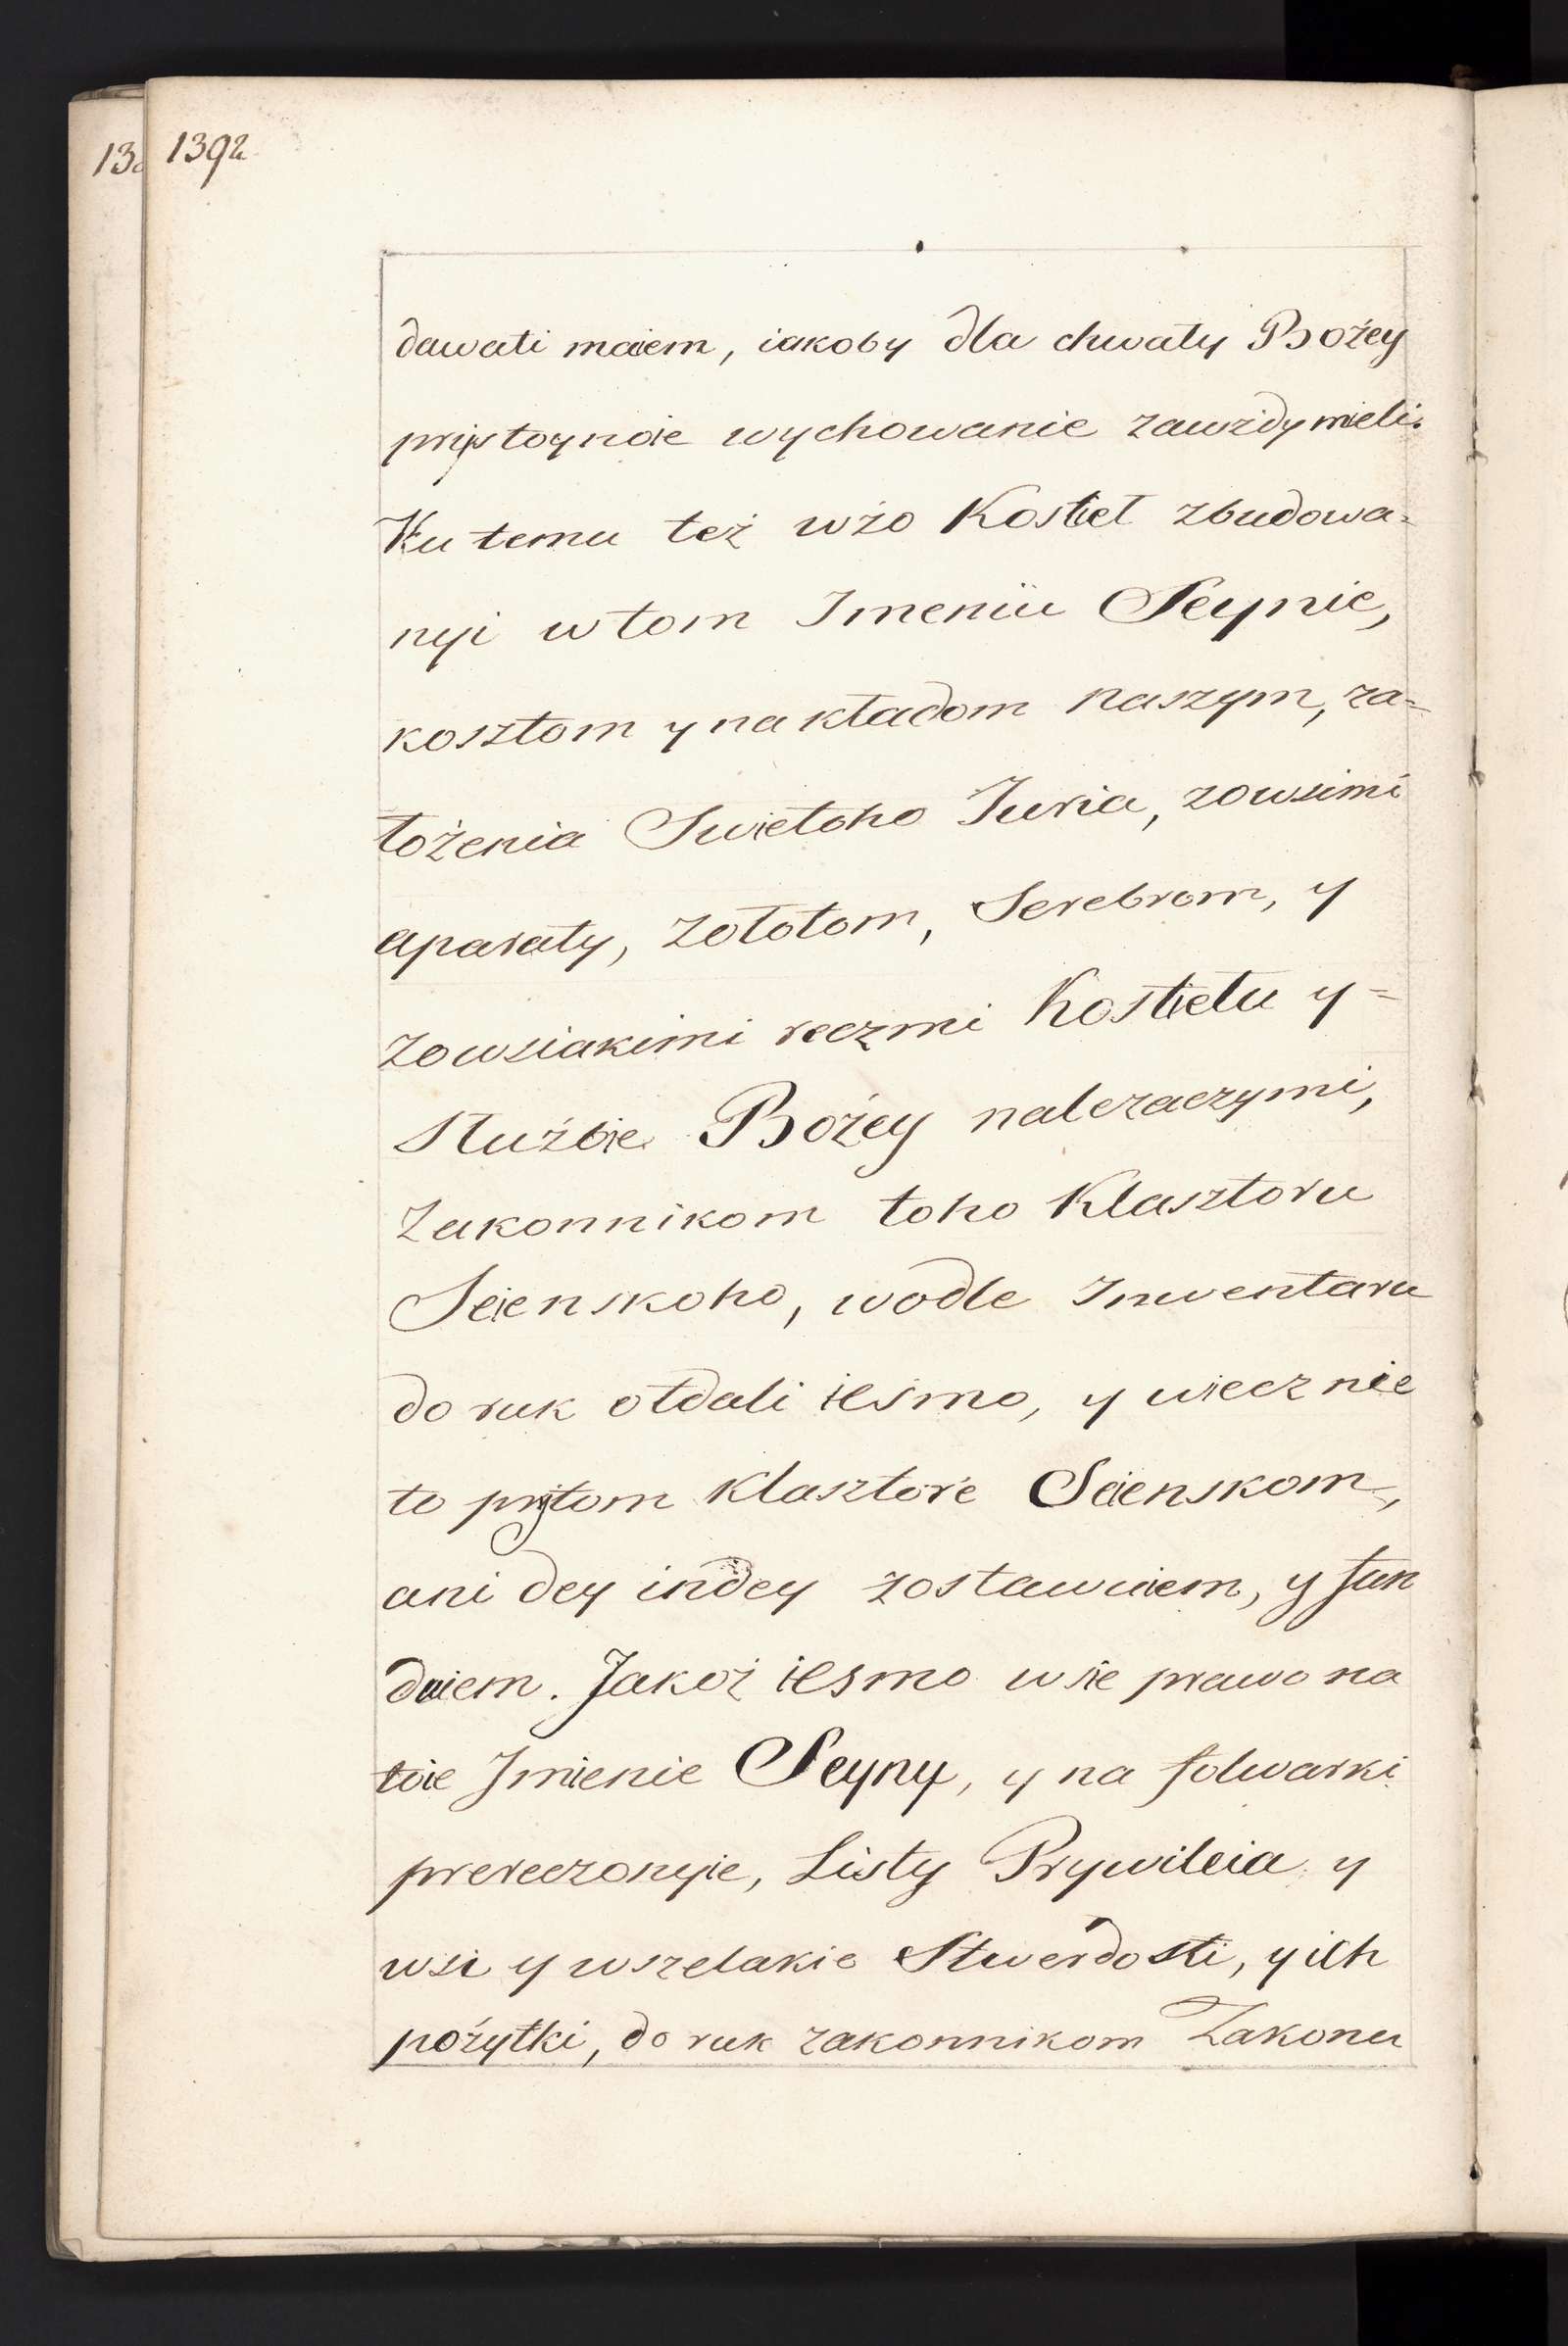 13
1392
dawati maiem, iakoby dla chwały Bożey
prystoynoie wychowanie zawżdy mieli.
Ku temu też wżo Kostieł zbudowa=
nyi w tom Imeniu Seynie,
kosztom y nakładom naszym, za=
łożenia Swietoho Juria, zowsimi
aparaty, zołotom, Serebrom, y
zowsiakimi reczmi Kostiełu y=
służbie Bożey należaczymi,
Zakonnikom toho Klasztoru
Seienskoho, wodle Inwentaru
do ruk otdali iesmo, y wiecznie
to prytom Klasztore Seienskom,
ani dey indey zostawuiem, y fun
duiem. Jakoż iesmo wsie prawo na
toie Jmienie Seyny, y na folwarki
prereczonyie, Listy Prywileia y
wsi y wszelakie Stwerdosti, y ich
pożytki, do ruk zakonnikom Zakonu